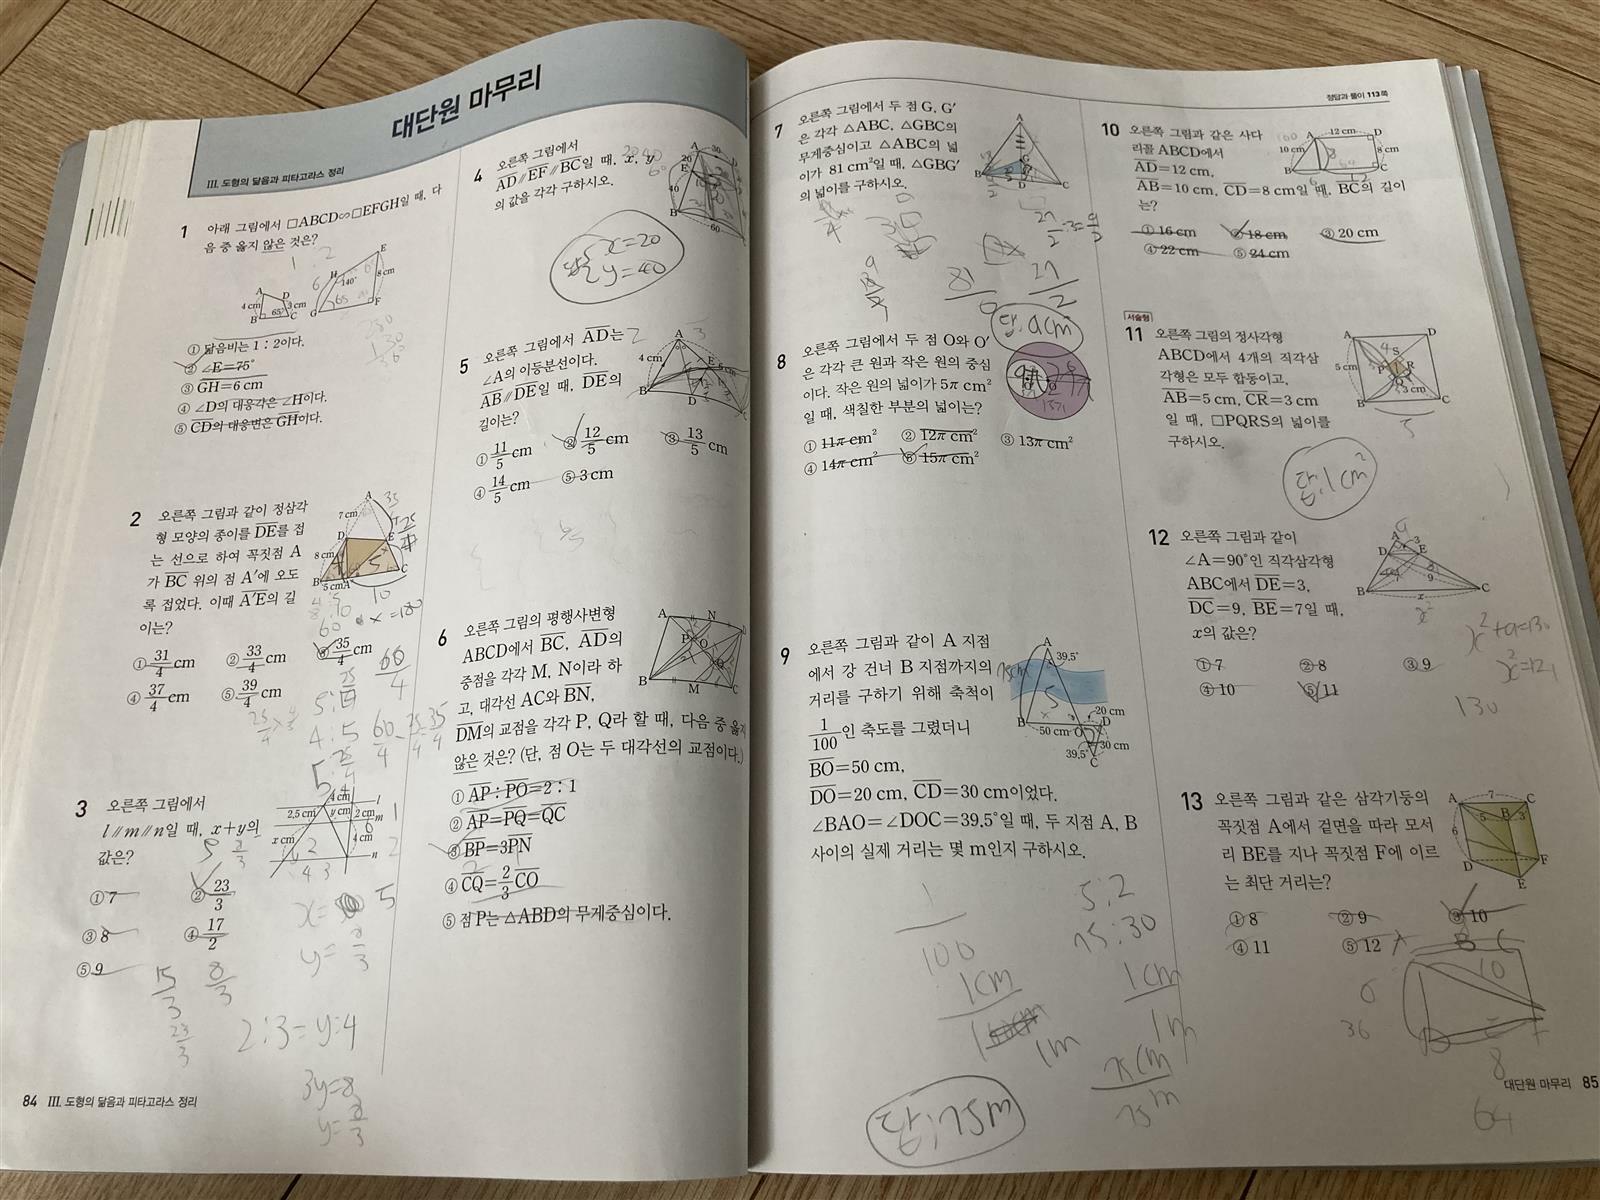 대단원 마무리
III. 도형의 닮음과 피타고라스 정리
1 아래 그림에서 □ABCD∽□EFGH일 때, 다
음 중 옳지 않은 것은?
A
D
4 cm
3 cm
B
65°
C
E
H
140°
8 cm
G
F
① 닮음비는 1 : 2이다.
② ∠E=75°
③ GH=6 cm
④ ∠D의 대응각은 ∠H이다.
⑤ CD의 대응변은 GH이다.
2 오른쪽 그림과 같이 정삼각
형 모양의 종이를 DE를 접
는 선으로 하여 꼭짓점 A
가 BC 위의 점 A′에 오도
록 접었다. 이때 A′E의 길
이는?
A
7 cm
D
E
8 cm
B
5 cm A′
C
① 31/4 cm ② 33/4 cm ③ 35/4 cm
④ 37/4 cm ⑤ 39/4 cm
3 오른쪽 그림에서
l∥m∥n일 때, x+y의
값은?
4 cm
l
2.5 cm
y cm
2 cm
m
x cm
4 cm
n
① 7 ② 23/3
③ 8 ④ 17/2
⑤ 9
x= 5
y= 8/3
15/3
8/3
23/3
2:3=y:4
3y=8
y=8/3
84 III. 도형의 닮음과 피타고라스 정리
4 오른쪽 그림에서
AD∥EF∥BC일 때, x, y
의 값을 각각 구하시오.
답 { x=20
y=40
5 오른쪽 그림에서 AD는
∠A의 이등분선이다.
AB∥DE일 때, DE의
길이는?
A
4 cm
E
6 cm
B
D
C
① 11/5 cm ② 12/5 cm ③ 13/5 cm
④ 14/5 cm ⑤ 3 cm
6 오른쪽 그림의 평행사변형
ABCD에서 BC, AD의
중점을 각각 M, N이라 하
고, 대각선 AC와 BN,
DM의 교점을 각각 P, Q라 할 때, 다음 중 옳지
않은 것은? (단, 점 O는 두 대각선의 교점이다.)
A
N
D
P
O
Q
B
M
C
① AP : PO=2 : 1
② AP=PQ=QC
③ BP=3PN
④ CQ=2/3 CO
⑤ 점 P는 △ABD의 무게중심이다.
정답과 풀이 113쪽
7 오른쪽 그림에서 두 점 G, G′
은 각각 △ABC, △GBC의
무게중심이고 △ABC의 넓
이가 81 cm²일 때, △GBG′
의 넓이를 구하시오.
A
G
B
D
C
81/6
27/2
답. 9cm²
8 오른쪽 그림에서 두 점 O와 O′
은 각각 큰 원과 작은 원의 중심
이다. 작은 원의 넓이가 5π cm²
일 때, 색칠한 부분의 넓이는?
① 11π cm² ② 12π cm² ③ 13π cm²
④ 14π cm² ⑤ 15π cm²
9 오른쪽 그림과 같이 A 지점
에서 강 건너 B 지점까지의
거리를 구하기 위해 축척이
1/100인 축도를 그렸더니
BO=50 cm,
DO=20 cm, CD=30 cm이었다.
∠BAO=∠DOC=39.5°일 때, 두 지점 A, B
사이의 실제 거리는 몇 m인지 구하시오.
A
39.5°
75cm
20 cm
B
O
D
50 cm
30 cm
39.5°
C
1/100
1cm
1m
5:2
75:30
1cm
1m
75cm
75m
답: 75m
10 오른쪽 그림과 같은 사다
리꼴 ABCD에서
AD=12 cm,
AB=10 cm, CD=8 cm일 때, BC의 길이
는?
A
12 cm
D
10 cm
8 cm
B
C
① 16 cm ② 18 cm ③ 20 cm
④ 22 cm ⑤ 24 cm
서술형
11 오른쪽 그림의 정사각형
ABCD에서 4개의 직각삼
각형은 모두 합동이고,
AB=5 cm, CR=3 cm
일 때, □PQRS의 넓이를
구하시오.
A
D
S
5 cm
P
R
Q
3 cm
B
C
답. 1cm²
12 오른쪽 그림과 같이
∠A=90°인 직각삼각형
ABC에서 DE=3,
DC=9, BE=7일 때,
x의 값은?
A
3
D
E
7
9
B
x
C
① 7 ② 8 ③ 9
④ 10 ⑤ 11
x²+9=130
x²=121
130
13 오른쪽 그림과 같은 삼각기둥의
꼭짓점 A에서 겉면을 따라 모서
리 BE를 지나 꼭짓점 F에 이르
는 최단 거리는?
A
7
C
5
B
3
6
D
F
E
① 8 ② 9 ③ 10
④ 11 ⑤ 12
10
6
36
8
64
대단원 마무리 85